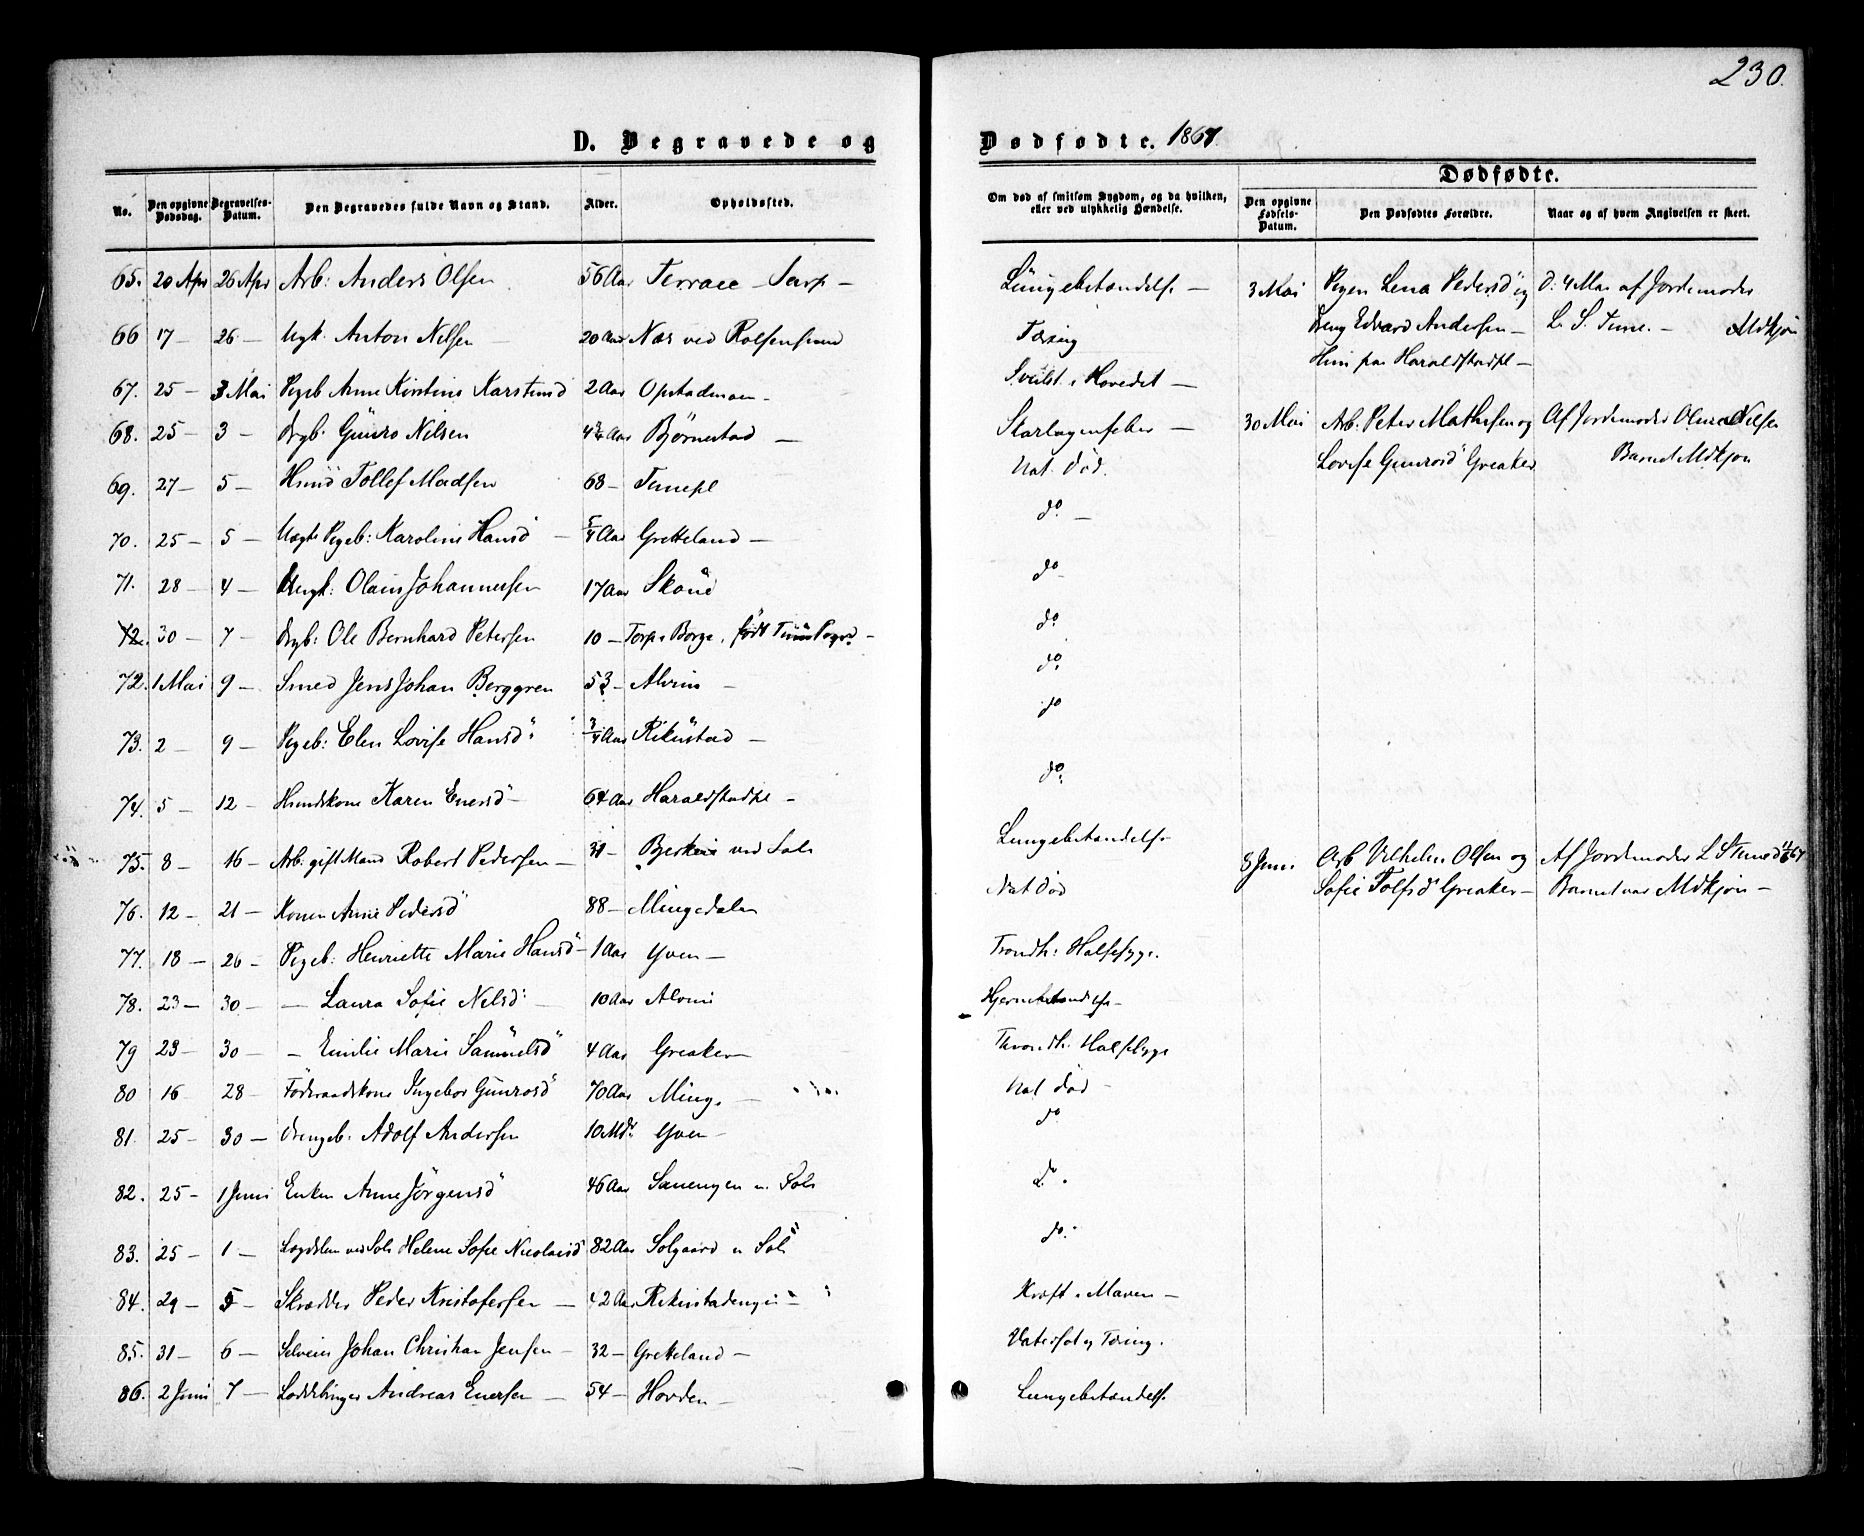 230.
D. Begravede og Dødfødte. 1867.
No. Den opgivne Dødsdag. Begravelses-Datum. Den Begravedes fulde Navn og Stand. Alder. Opholdssted.
Om død af smitsom Sygdom, og da hvilken, eller ved ulykkelig Hændelse.
Dødfødte.
Den opgivne Fødsels-Datum. Den Dødfødtes Forældre. Naar og af hvem Angivelsen er skeet.
65. 20 Apr 26 Apr Arb: Anders Olsen 56 Aar Terrace Sarp – Lungebetændelse –
66 17 – 26 – Ugk. Anton Nilsen 20 Aar Næs ved Rolfsensund Tæring
67. 25 – 3 Mai Pigeb Anne Kirstine Karstensd 2 Aar Opstadmoen – i Hovedet –
68. 25 – 3 – Drgb. Gunro Nilsen Aar Bjørnestad – Skarlagensfeber –
69. 27 – 5 – Huusd Tollef Madsen 68 – Tunepl Nat. død.
70. 25 – 5 – Uægte Pigeb: Karoline Hansd – 5/4 Aar Gretteland – do –
71. 28 – 4 – Ungk: Olaus Johannessen 17 Aar do
72. 30 – 7 – Drgb: Ole Bernhard Petersen 10 – Torp i Borge, født Tune Pgd – do
72. 1 Mai 9 – Smed Jens Johan Berggren 53 – Alvim – do
73. 2 – 9 – Pigeb: Elen Lovise Hansd 3/4 Aar Rikustad – do
74. 5 – 12 – Huusmdskone Karen Enersd – 64 Aar Haraldstadpl – do
75. 8 – 16 – Arb. gift Mand Robert Pedersen – 31 – ved Sols Lungebetændelse
76. 12 – 21 – Konen Anne Pedersd 88 – Mingedalen Nat død
77. 18 – 26 – Pigeb: Henriette Marie Hansd – 1 Aar Yven – Trondh: Halssyge.
78. 23 – 30 – – Laura Sofie Nilsd – 10 Aar Alvim Hjernebetændelse –
79 23 – 30 – – Emilie Marie Samuelsd 4 Aar Greaker Throndh: Halssyge
80 16 28 – Føderaadskone Ingebor Gunrosd 70 Aar Minge – Nat død –
81. 25 – 30 – Drengeb. Adolf Andersen 10 Mdr Yven – do
82. 25 – 1 Juni Enken Anne Jørgensd 46 Aar u. Sols do
83. 25 – 1 – Lægdslem ved Sols Helene Sofie Nicolaisd 82 Aar Solgaard u Sols do
84. 29 – 5 – Skrædder Peder Kristofersen – 42 Aar Rikustadengen – Kræft i Maven –
85. 31 – 6 – Selveier Johan Christian Jensen – 32 – Gretteland – Vatersot og Tæring.
86. 2 Juni 7 – Andreas Enersen – 54 – Hovden – Lungebetændelse
3 Mai Pigen Lena Pedersd og d: 4 Mai af Jordemoder
Dreng Edvard Andersen – L. S. Tune. – Mdkjøn
Hun paa Haraldstadpl –
30 Mai Arb. Peter Mathisen og Af Jordemoder Nilsen
Lovise Gunrosd Greaker Barnet Mdkjøn
8 Juni Arb Vilhelm Olsen og Af Jordemoder L S Tune
Sofie Tolfsd Greaker – Barnet var Mdkjøn –